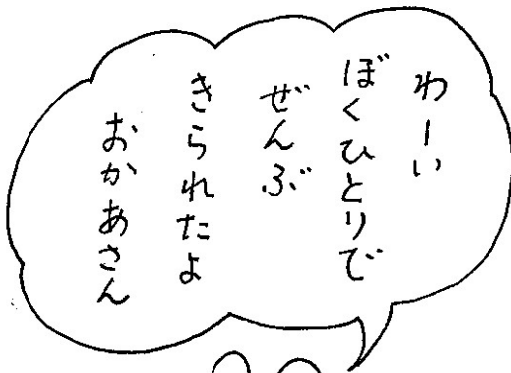 わーい
ぼくひとりで
ぜんぶ
きられたよ
おかあさん